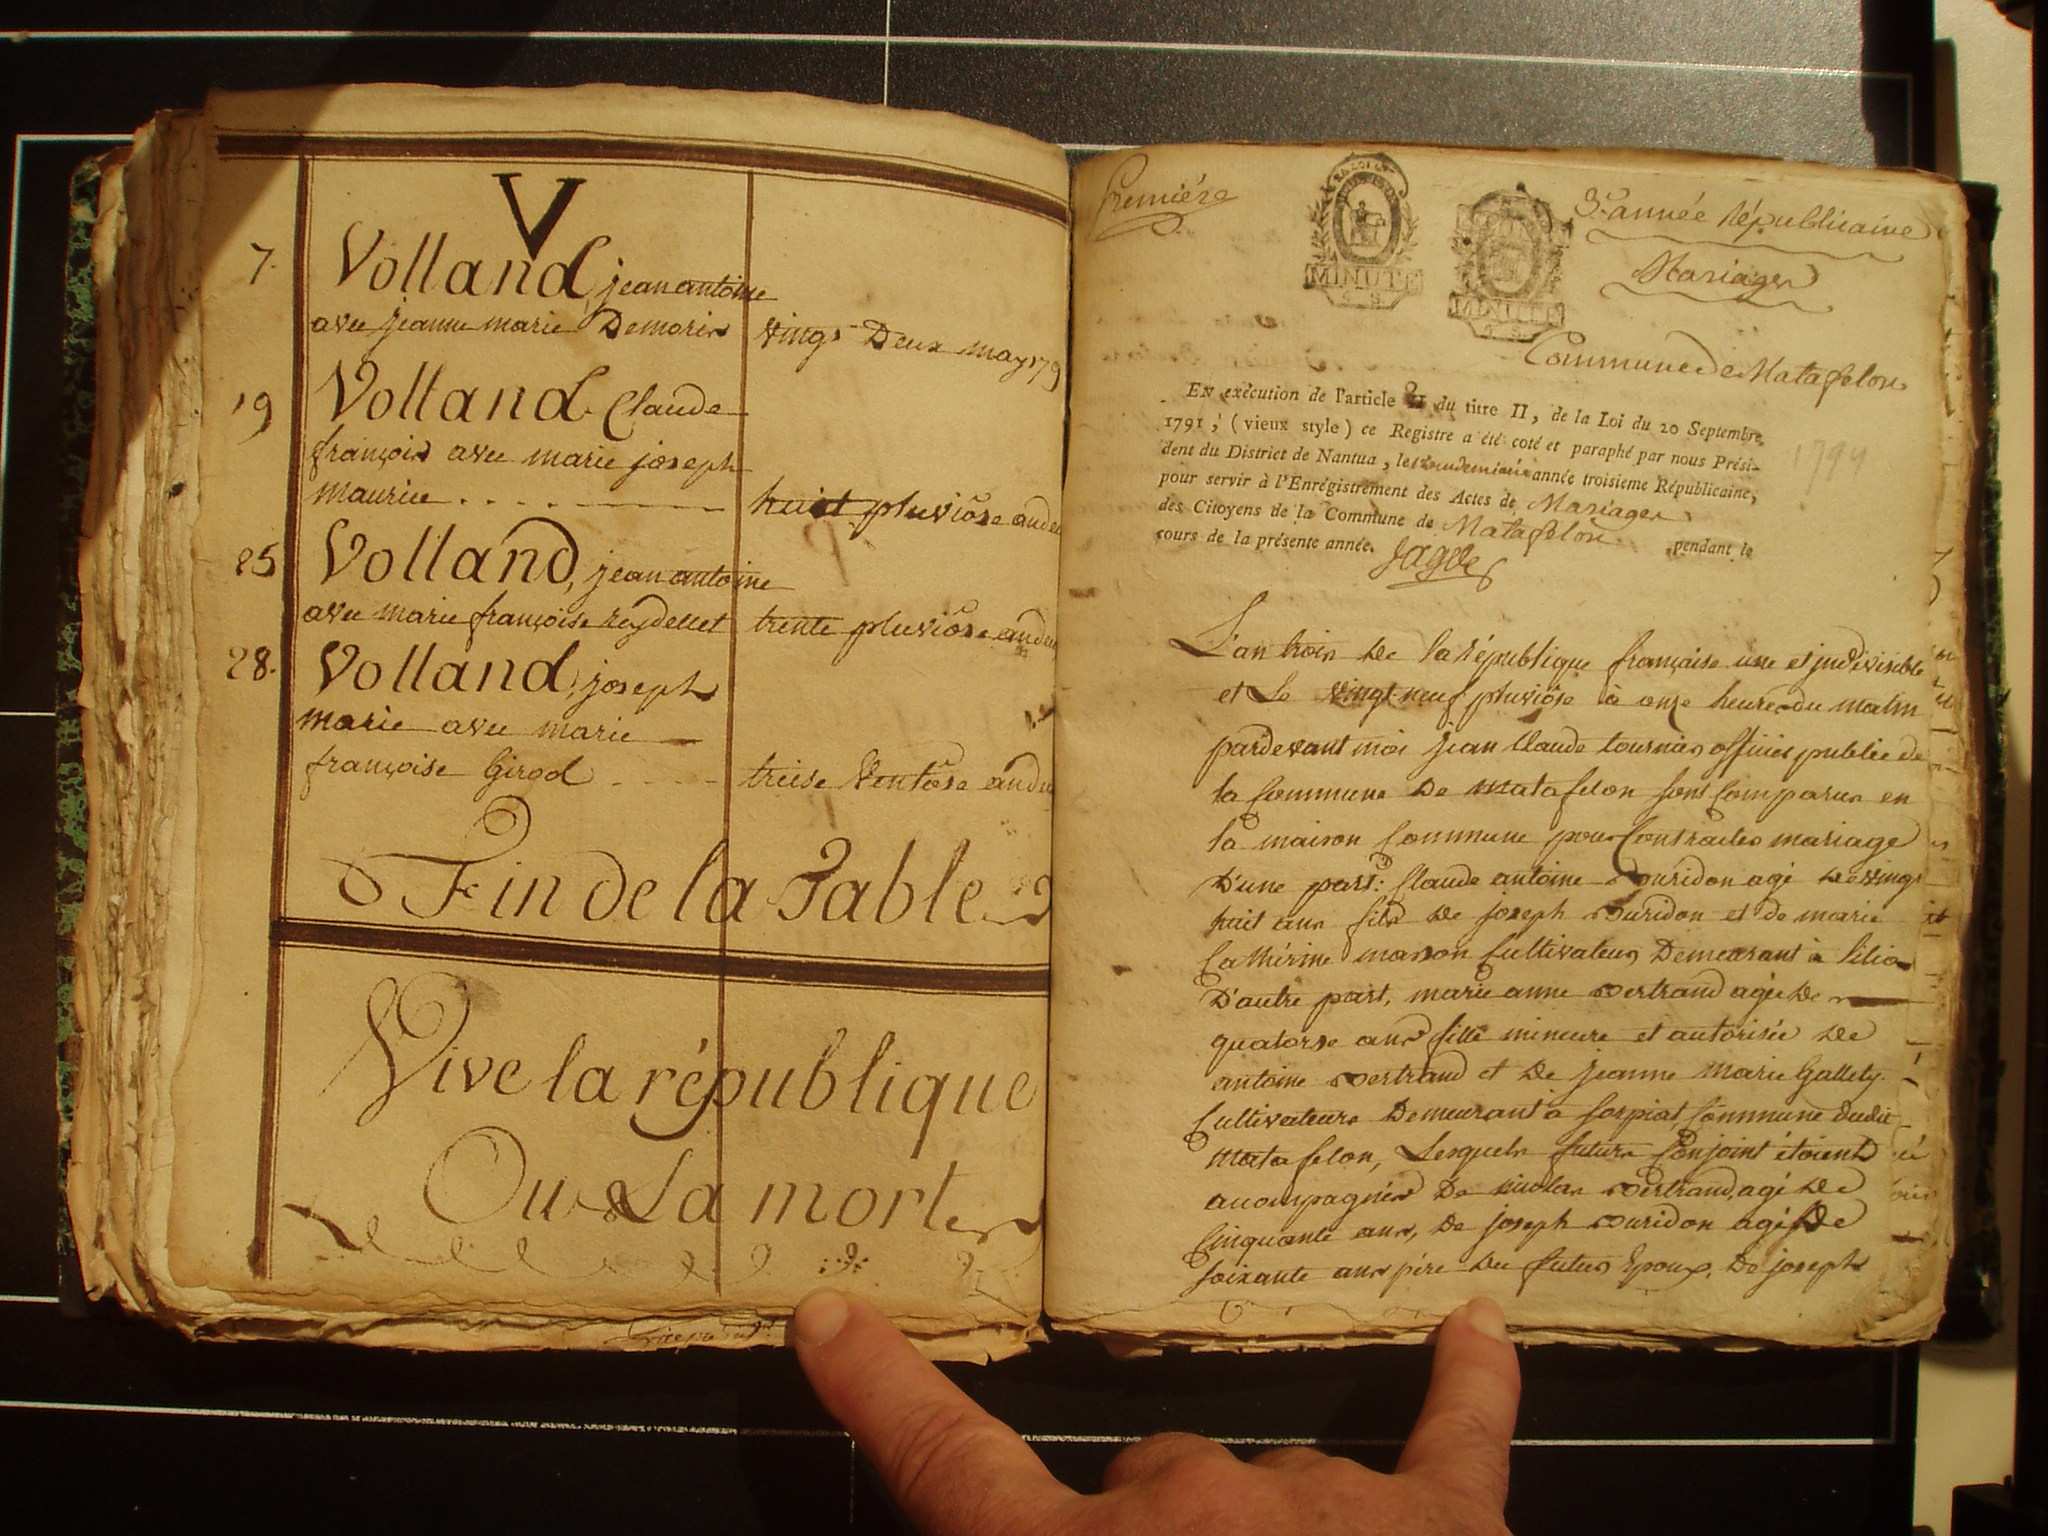 V
7. Volland, jean antoine
avec jeanne marie Demorin vingt Deux may 179
19 Volland Claude
françois avec marie joseph
maurice . . . . huit pluviôse an deu
25 Volland, jean antoine
avec marie françoise reydellet trente pluviôse an deu
28. Volland, joseph
marie avec marie
françoise Girod . . . . treise Ventôse an deu
Fin de la Table
Vive la république
Ou La mort
Premiére
MINUTE
MINUTE
3.e année Républicaine
Mariages
Commune de Matafelon
EN exécution de l'article II du titre II, de la Loi du 20 Septembre
1791, (vieux style) ce Registre a été coté et paraphé par nous Prési-
dent du District de Nantua, le année troisieme Républicaine,
1794
pour servir à l'Enrégistrement des Actes de Mariages
des Citoyens de la Commune de Matafelon pendant le
cours de la présente année.
L'an trois de la république française une et indivisible
et Le vingt neuf pluviôse à onze heures du matin
pardevant moi jean Claude tournier officier public de
la Commune De matafelon sont Comparus en
la maison Commune pour Contracter mariage
D'une part: Claude antoine Bouridon agé de vingt
huit ans fils De joseph Bouridon et de marie
Cathérine masson Cultivateur Demeurant à
D'autre part, marie anne Bertrand agée De
quatorse ans fille mineure et autorisée De
antoine Bertrand et De jeanne Marie Gallety
Cultivateurs Demeurant à Corpiat, Commune dudit
Matafelon, Lesquels futurs Conjoint étoient
acompagnés De nicolas Bertrand, agé De
Cinquante ans, De joseph Bouridon agé De
soixante ans pére Du futur Epoux, De joseph